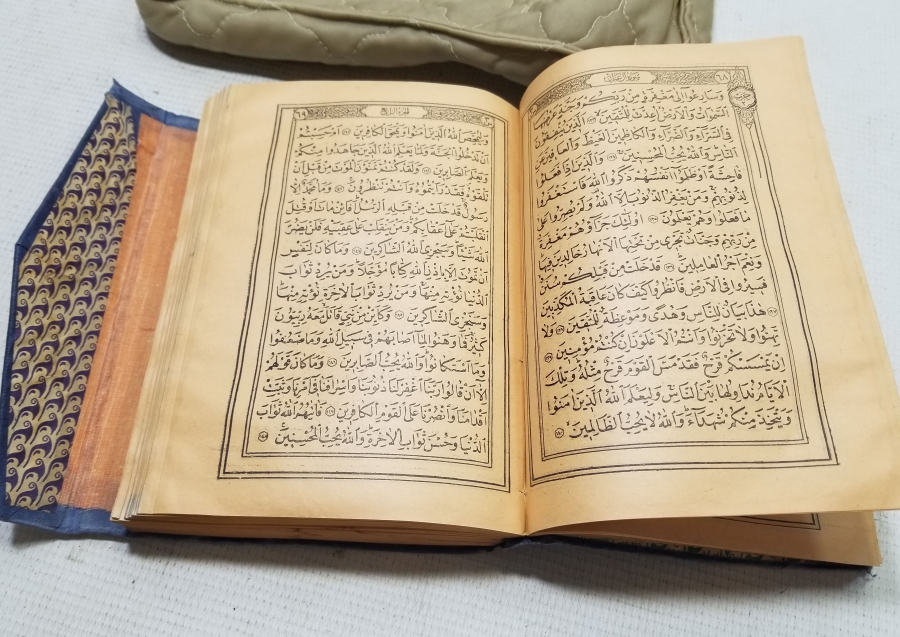 سورة آل عمران ٦٨
وَسَارِعُوا إِلَى مَغْفِرَةٍ مِنْ رَبِّكُمْ وَجَنَّةٍ عَرْضُهَا
السَّمٰوَاتُ وَالْأَرْضُ أُعِدَّتْ لِلْمُتَّقِينَ ١٣٣ الَّذِينَ يُنْفِقُونَ
فِي السَّرَّاءِ وَالضَّرَّاءِ وَالْكَاظِمِينَ الْغَيْظَ وَالْعَافِينَ عَنِ
النَّاسِ وَاللَّهُ يُحِبُّ الْمُحْسِنِينَ ١٣٤ وَالَّذِينَ إِذَا فَعَلُوا
فَاحِشَةً أَوْ ظَلَمُوا أَنْفُسَهُمْ ذَكَرُوا اللَّهَ فَاسْتَغْفَرُوا
لِذُنُوبِهِمْ وَمَنْ يَغْفِرُ الذُّنُوبَ إِلَّا اللَّهُ وَلَمْ يُصِرُّوا عَلَى
مَا فَعَلُوا وَهُمْ يَعْلَمُونَ ١٣٥ أُولٰئِكَ جَزَاؤُهُمْ مَغْفِرَةٌ
مِنْ رَبِّهِمْ وَجَنَّاتٌ تَجْرِي مِنْ تَحْتِهَا الْأَنْهَارُ خَالِدِينَ فِيهَا
وَنِعْمَ أَجْرُ الْعَامِلِينَ ١٣٦ قَدْ خَلَتْ مِنْ قَبْلِكُمْ سُنَنٌ
فَسِيرُوا فِي الْأَرْضِ فَانْظُرُوا كَيْفَ كَانَ عَاقِبَةُ الْمُكَذِّبِينَ
١٣٧ هٰذَا بَيَانٌ لِلنَّاسِ وَهُدًى وَمَوْعِظَةٌ لِلْمُتَّقِينَ ١٣٨ وَلَا
تَهِنُوا وَلَا تَحْزَنُوا وَأَنْتُمُ الْأَعْلَوْنَ إِنْ كُنْتُمْ مُؤْمِنِينَ ١٣٩
إِنْ يَمْسَسْكُمْ قَرْحٌ فَقَدْ مَسَّ الْقَوْمَ قَرْحٌ مِثْلُهُ وَتِلْكَ
الْأَيَّامُ نُدَاوِلُهَا بَيْنَ النَّاسِ وَلِيَعْلَمَ اللَّهُ الَّذِينَ آمَنُوا
وَيَتَّخِذَ مِنْكُمْ شُهَدَاءَ وَاللَّهُ لَا يُحِبُّ الظَّالِمِينَ ١٤٠
الجزء الرابع ٦٩
وَلِيُمَحِّصَ اللَّهُ الَّذِينَ آمَنُوا وَيَمْحَقَ الْكَافِرِينَ ١٤١ أَمْ حَسِبْتُمْ
أَنْ تَدْخُلُوا الْجَنَّةَ وَلَمَّا يَعْلَمِ اللَّهُ الَّذِينَ جَاهَدُوا مِنْكُمْ
وَيَعْلَمَ الصَّابِرِينَ ١٤٢ وَلَقَدْ كُنْتُمْ تَمَنَّوْنَ الْمَوْتَ مِنْ قَبْلِ أَنْ
تَلْقَوْهُ فَقَدْ رَأَيْتُمُوهُ وَأَنْتُمْ تَنْظُرُونَ ١٤٣ وَمَا مُحَمَّدٌ إِلَّا
رَسُولٌ قَدْ خَلَتْ مِنْ قَبْلِهِ الرُّسُلُ أَفَإِنْ مَاتَ أَوْ قُتِلَ
انْقَلَبْتُمْ عَلَى أَعْقَابِكُمْ وَمَنْ يَنْقَلِبْ عَلَى عَقِبَيْهِ فَلَنْ يَضُرَّ
اللَّهَ شَيْئًا وَسَيَجْزِي اللَّهُ الشَّاكِرِينَ ١٤٤ وَمَا كَانَ لِنَفْسٍ
أَنْ تَمُوتَ إِلَّا بِإِذْنِ اللَّهِ كِتَابًا مُؤَجَّلًا وَمَنْ يُرِدْ ثَوَابَ
الدُّنْيَا نُؤْتِهِ مِنْهَا وَمَنْ يُرِدْ ثَوَابَ الْآخِرَةِ نُؤْتِهِ مِنْهَا
وَسَنَجْزِي الشَّاكِرِينَ ١٤٥ وَكَأَيِّنْ مِنْ نَبِيٍّ قَاتَلَ مَعَهُ رِبِّيُّونَ
كَثِيرٌ فَمَا وَهَنُوا لِمَا أَصَابَهُمْ فِي سَبِيلِ اللَّهِ وَمَا ضَعُفُوا
وَمَا اسْتَكَانُوا وَاللَّهُ يُحِبُّ الصَّابِرِينَ ١٤٦ وَمَا كَانَ قَوْلَهُمْ
إِلَّا أَنْ قَالُوا رَبَّنَا اغْفِرْ لَنَا ذُنُوبَنَا وَإِسْرَافَنَا فِي أَمْرِنَا وَثَبِّتْ
أَقْدَامَنَا وَانْصُرْنَا عَلَى الْقَوْمِ الْكَافِرِينَ ١٤٧ فَآتَاهُمُ اللَّهُ ثَوَابَ
الدُّنْيَا وَحُسْنَ ثَوَابِ الْآخِرَةِ وَاللَّهُ يُحِبُّ الْمُحْسِنِينَ ١٤٨